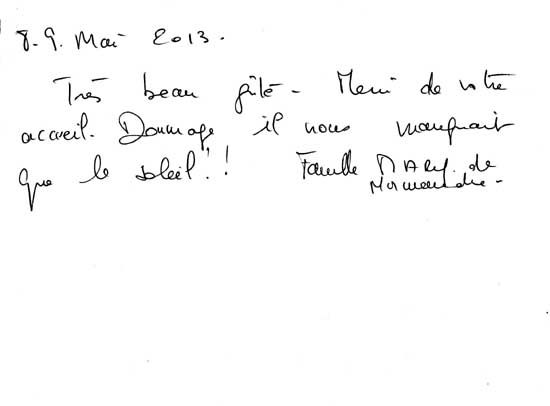 8.9. Mai 2013.
Très beau gîté - Merci de votre
accueil. Dommage il nous manquait
que le soleil!! Famille MARY de
Normandie -